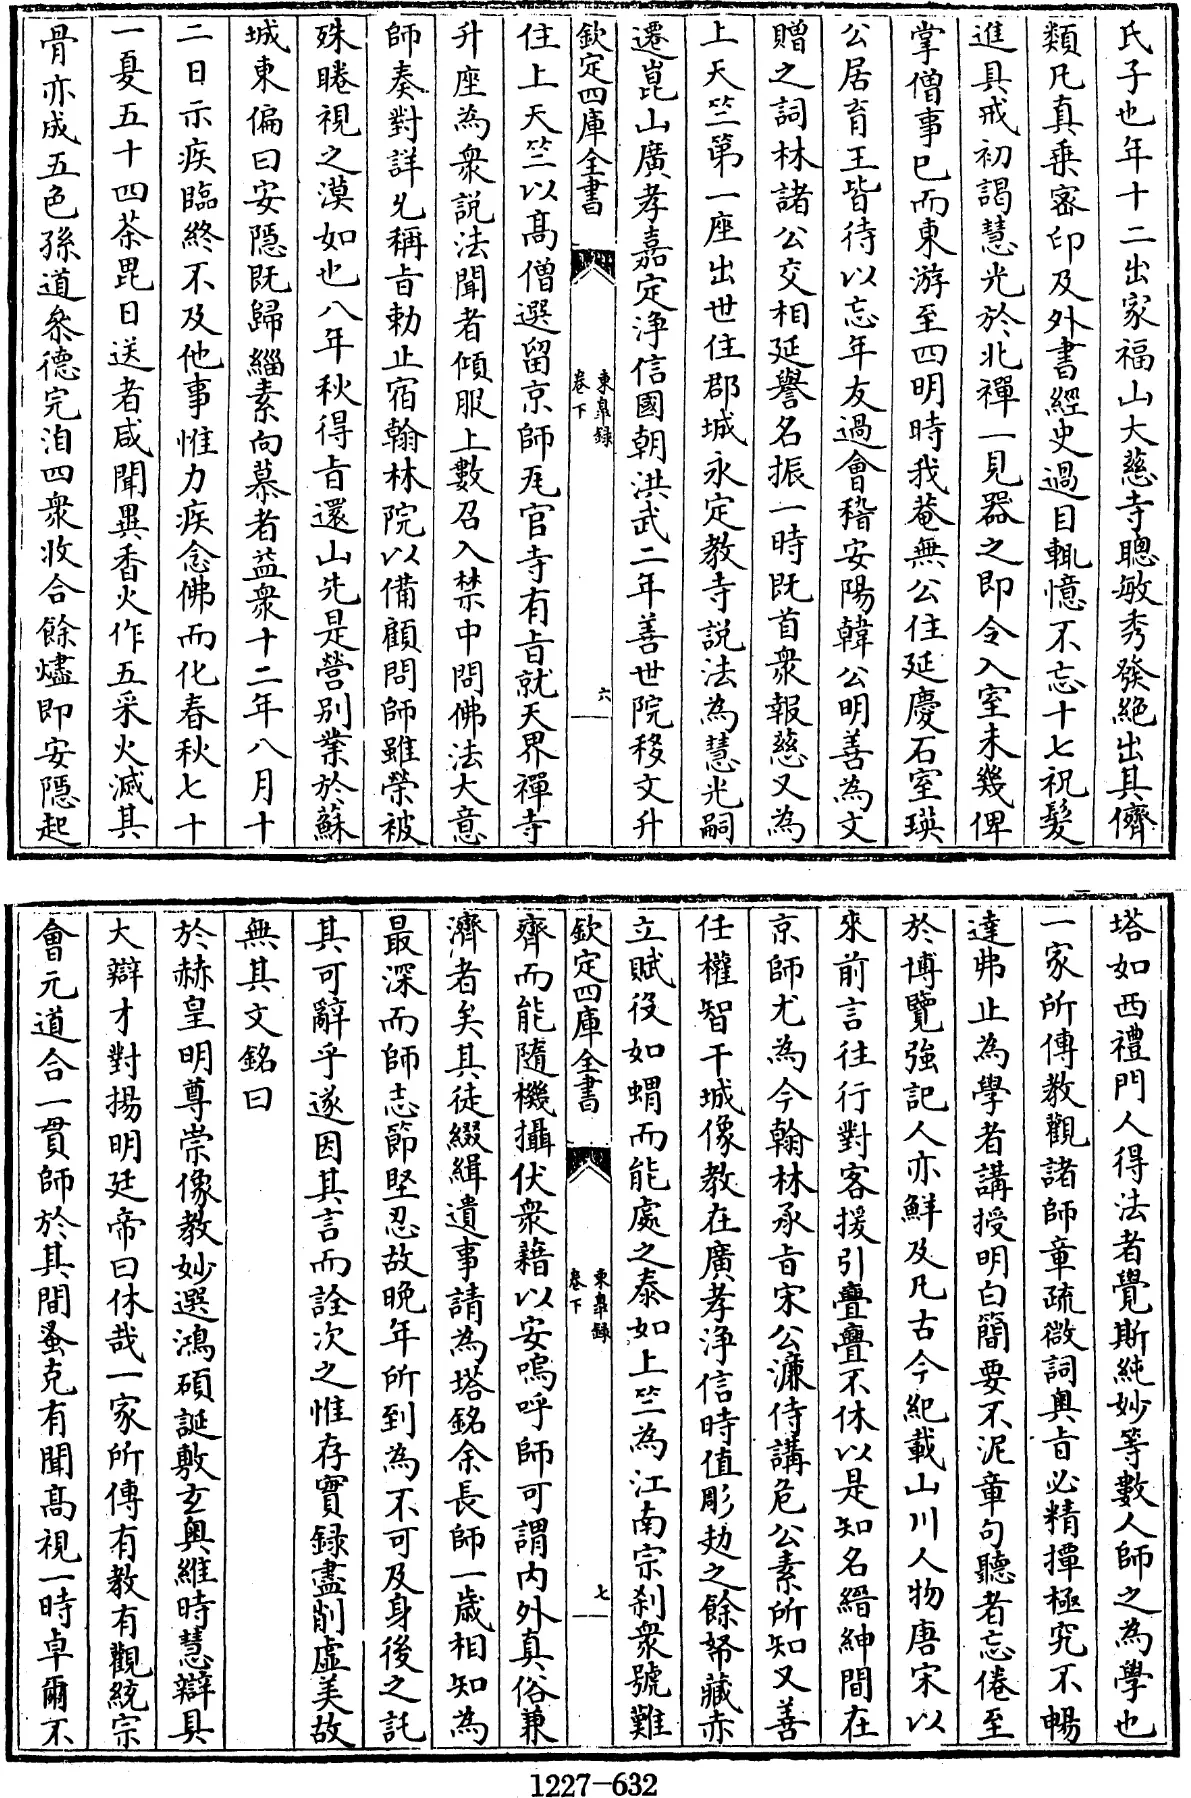 氏子也年十二出家福山大慈寺聰敏秀發絶出其儕
類凡真乗密印及外書經史過目輒憶不忘十七祝髮
進具戒初謁慧光於北禪一見器之即令入室未幾俾
掌僧事已而東游至四明時我菴無公住延慶石室瑛
公居育王皆待以忘年友過會稽安陽韓公明善為文
贈之詞林諸公交相延譽名振一時既首衆報慈又為
上天竺第一座出世住郡城永定教寺説法為慧光嗣
遷崑山廣孝嘉定淨信國朝洪武二年善世院移文升
欽定四庫全書
東臯録
卷下
六
住上天竺以髙僧選留京師瓦官寺有㫖就天界禪寺
升座為衆説法聞者傾服上數召入禁中問佛法大意
師奏對詳允稱㫖勅止宿翰林院以備顧問師雖榮被
殊睠視之漠如也八年秋得㫖還山先是營别業於蘇
城東偏曰安隠既歸緇素向慕者益衆十二年八月十
二日示疾臨終不及他事惟力疾念佛而化春秋七十
一夏五十四茶毘日送者咸聞異香火作五采火滅其
骨亦成五色孫道叅德完洎四衆收合餘燼即安隠起
塔如西禮門人得法者覺斯純妙等數人師之為學也
一家所傳教觀諸師章疏微詞奥㫖必精撢極究不暢
達弗止為學者講授明白簡要不泥章句聽者忘倦至
於博覽強記人亦鮮及凡古今紀載山川人物唐宋以
來前言往行對客援引亹亹不休以是知名縉紳間在
京師尤為今翰林承㫖宋公濂侍講危公素所知又善
任權智干城像教在廣孝淨信時值彫攰之餘帑藏赤
立賦役如蝟而能處之泰如上竺為江南宗刹衆號難
欽定四庫全書
東臯録
卷下
七
齊而能隨機攝伏衆藉以安嗚呼師可謂内外真俗兼
濟者矣其徒綴緝遺事請為塔銘余長師一歳相知為
最深而師志節堅忍故晩年所到為不可及身後之託
其可辭乎遂因其言而詮次之惟存實録盡削虚美故
無其文銘曰
於赫皇明尊崇像教妙選鴻碩誕敷玄奥維時慧辯具
大辯才對揚明廷帝曰休哉一家所傳有教有觀統宗
會元道合一貫師於其間蚤克有聞髙視一時卓爾不
1227-632